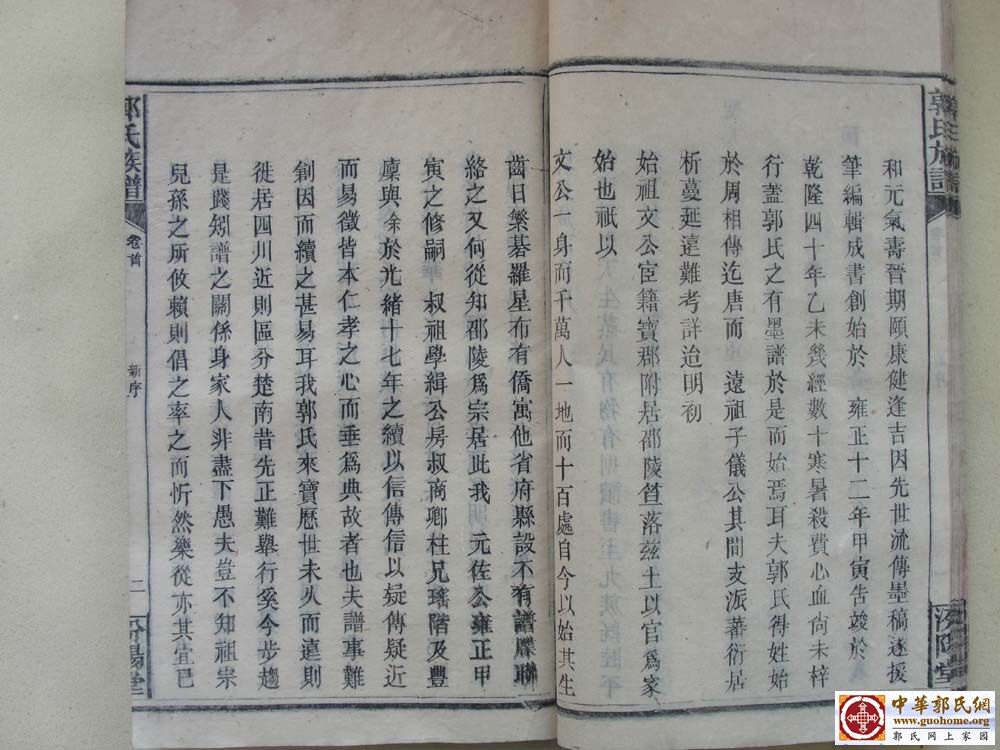 郭氏族譜
和元氣壽晉期頤康健逢吉因先世流傳墨稿遂援
筆編輯成書創始於　雍正十二年甲寅告竣於
乾隆四十年乙未幾經數十寒暑殺費心血尚未梓
行蓋郭氏之有墨譜於是而始焉耳夫郭氏得姓始
於周相傳迄唐而　遠祖子儀公其間支派蕃衍居
析蔓延遠難考詳迨明初
始祖文公宦籍寶郡附居邵陵笪落兹土以官爲家
始也祇以
文公一身而千萬人一地而十百處自今以始其生
齒日繁碁羅星布有僑寓他省府縣設不有譜牒聯
絡之又何從知邵陵爲宗居此我　元佐公雍正甲
寅之修嗣　叔祖學緝公房叔商卿柱兄瑤階及豐
廩與余於光緒十七年之續以信傳信以疑傳疑近
而易徵皆本仁孝之心而垂爲典故者也夫譜事難
創因而續之甚易耳我郭氏來寶歷世未乆而遠則
徙居四川近則區分楚南昔先正難舉行奚今步趨
是踐矧譜之關係身家人非盡下愚夫豈不知祖宗
兒孫之所攸賴則倡之率之而忻然樂從亦其宜已
郭氏族譜
卷首
新序
二
汾陽堂
汾陽堂
中華郭氏網
www.guohome.org
郭氏网上家园